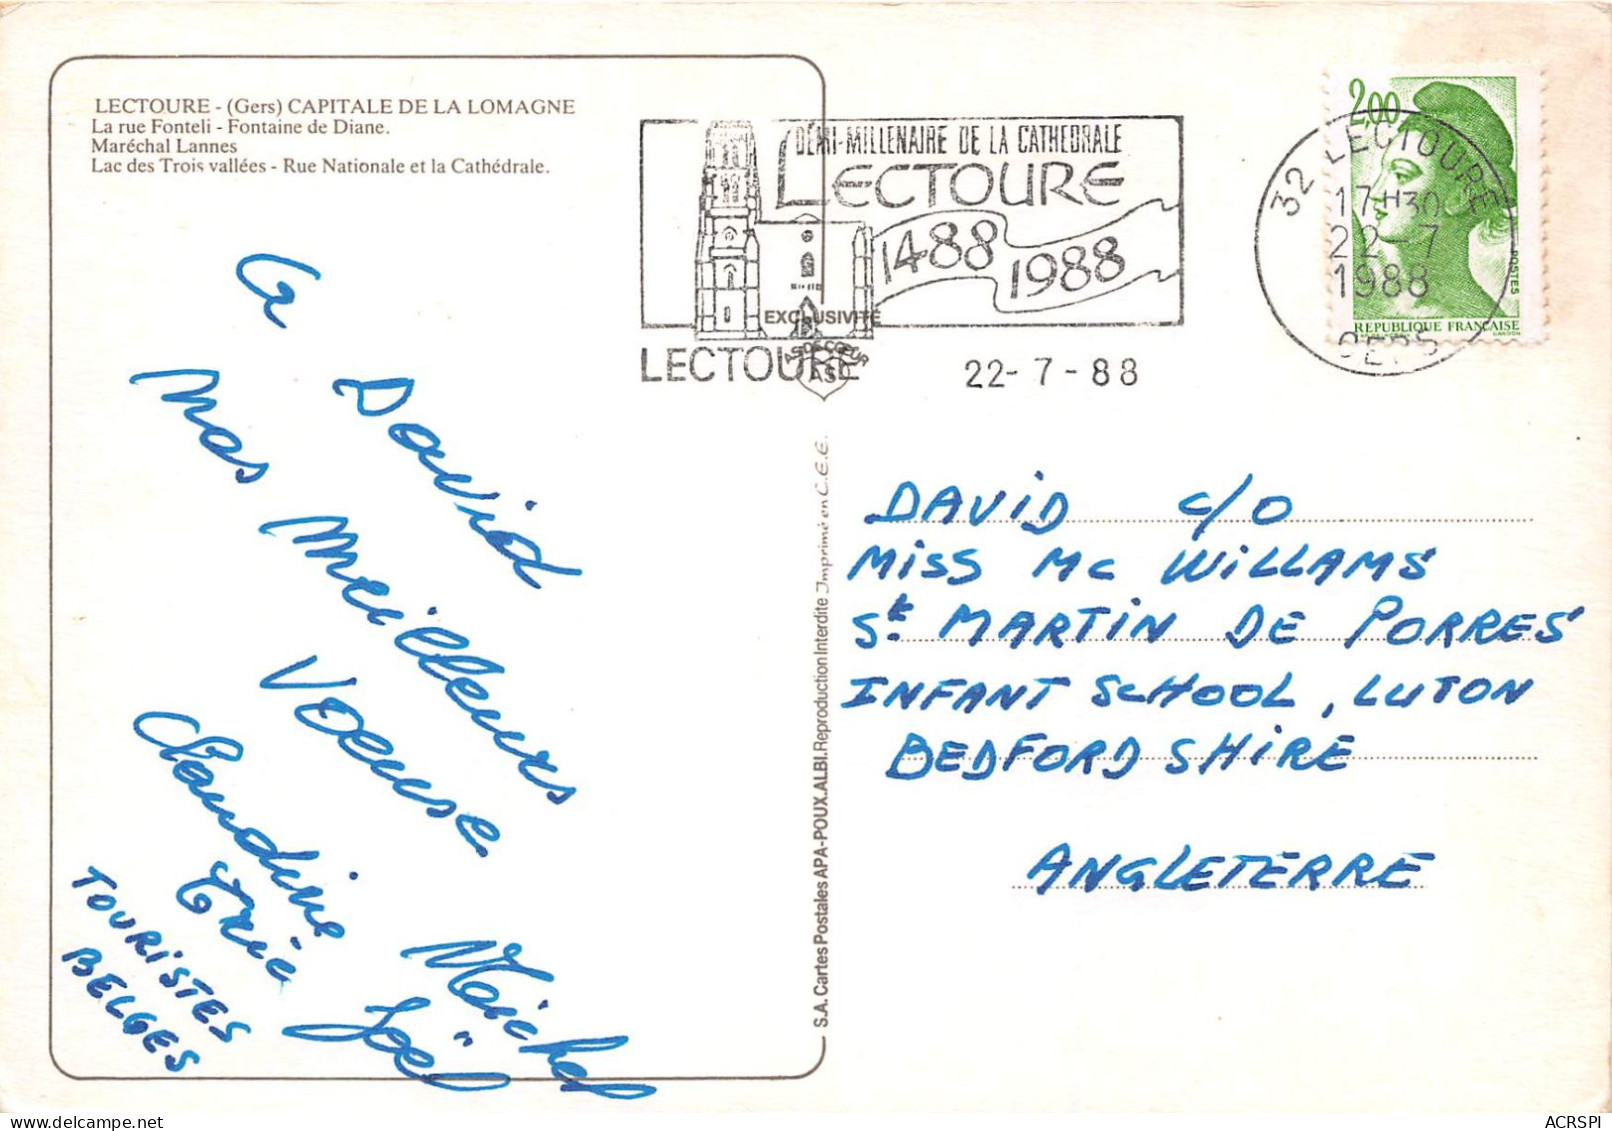 LECTOURE - (Gers) CAPITALE DE LA LOMAGNE
La rue Fonteli - Fontaine de Diane.
Maréchal Lannes
Lac des Trois vallées - Rue Nationale et la Cathédrale.
DEMI-MILLENAIRE DE LA CATHEDRALE
LECTOURE
1488 1988
LECTOURE 22-7-88
EXCLUSIVITÉ
AS DE CŒUR
AS
32 LECTOURE
17H30
22-7
1988
GERS
2,00
POSTES
REPUBLIQUE FRANÇAISE
A David
Nos Meilleurs
Voeux
Claudine
Eric
Michel
Joël
TOURISTES
BELGES
S.A. Cartes Postales APA-POUX. ALBI. Reproduction Interdite Imprimé en C.E.E.
DAVID c/o
MISS Mc WILLAMS
St. MARTIN DE PORRES
INFANT SCHOOL, LUTON
BEDFORDSHIRE
ANGLETERRE
ACRSPI